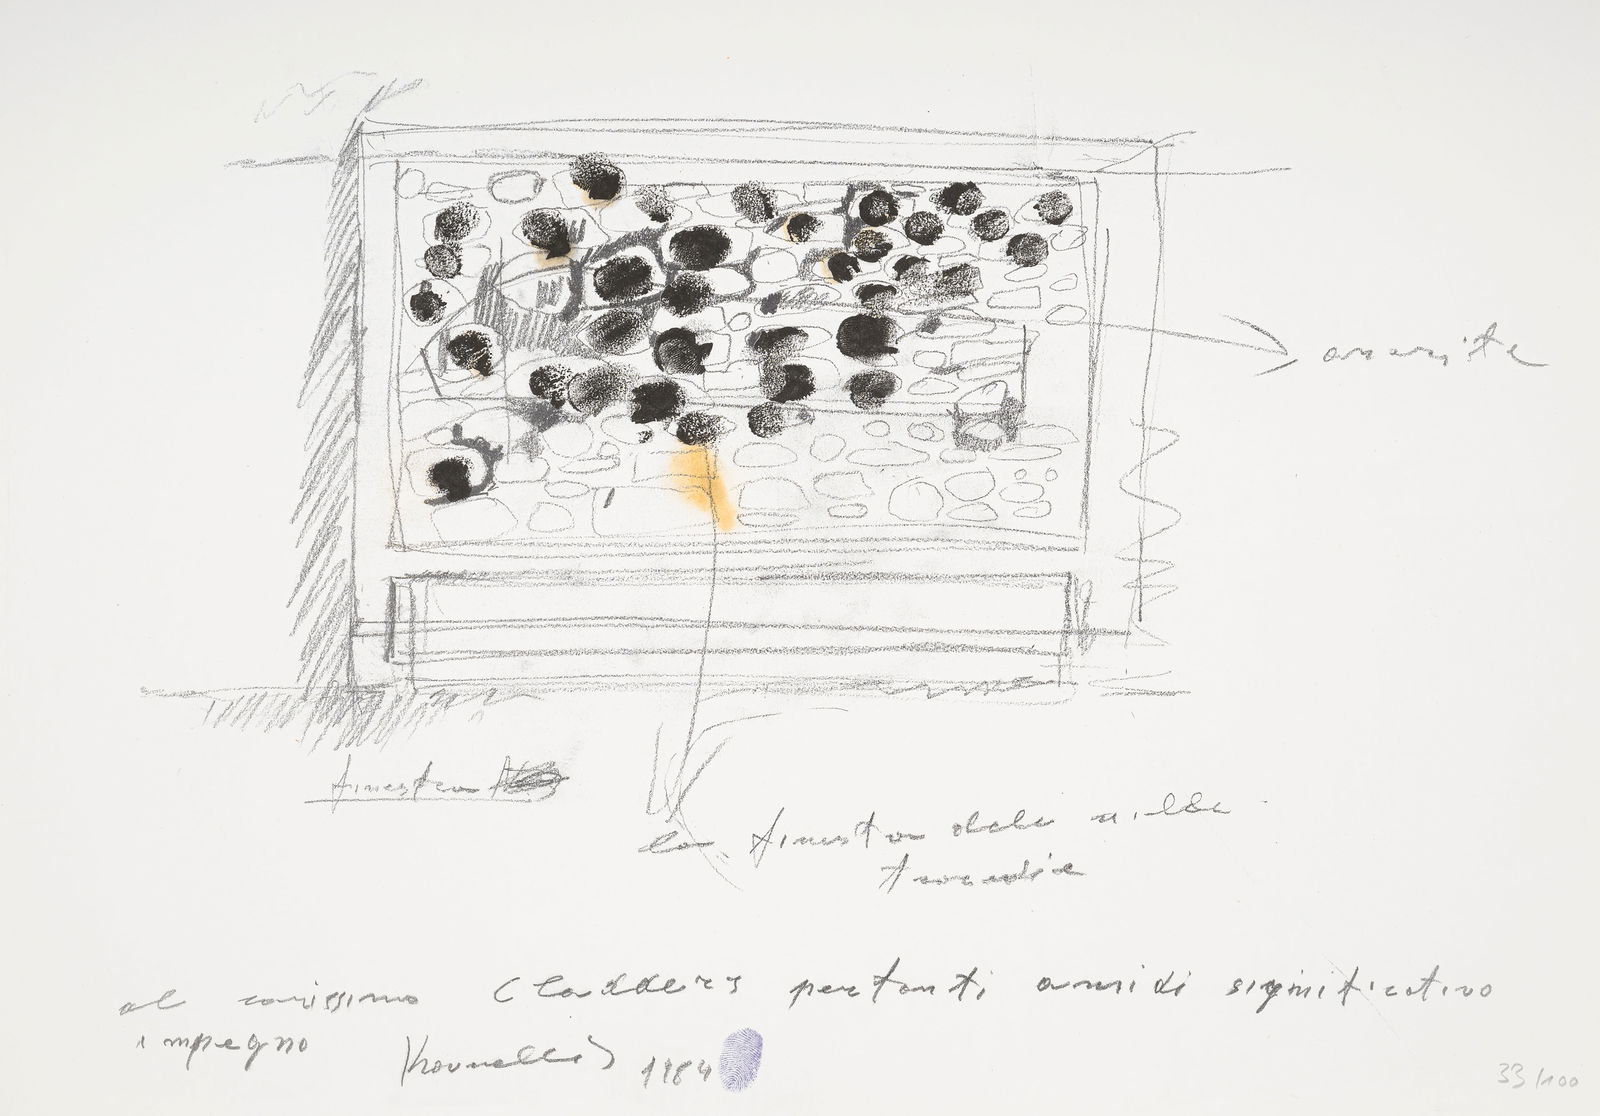 finestra
la finestra delle mille
tragedie
al carissimo Cladders per tanti anni di significativo
impegno Kounellis 1984
33/100